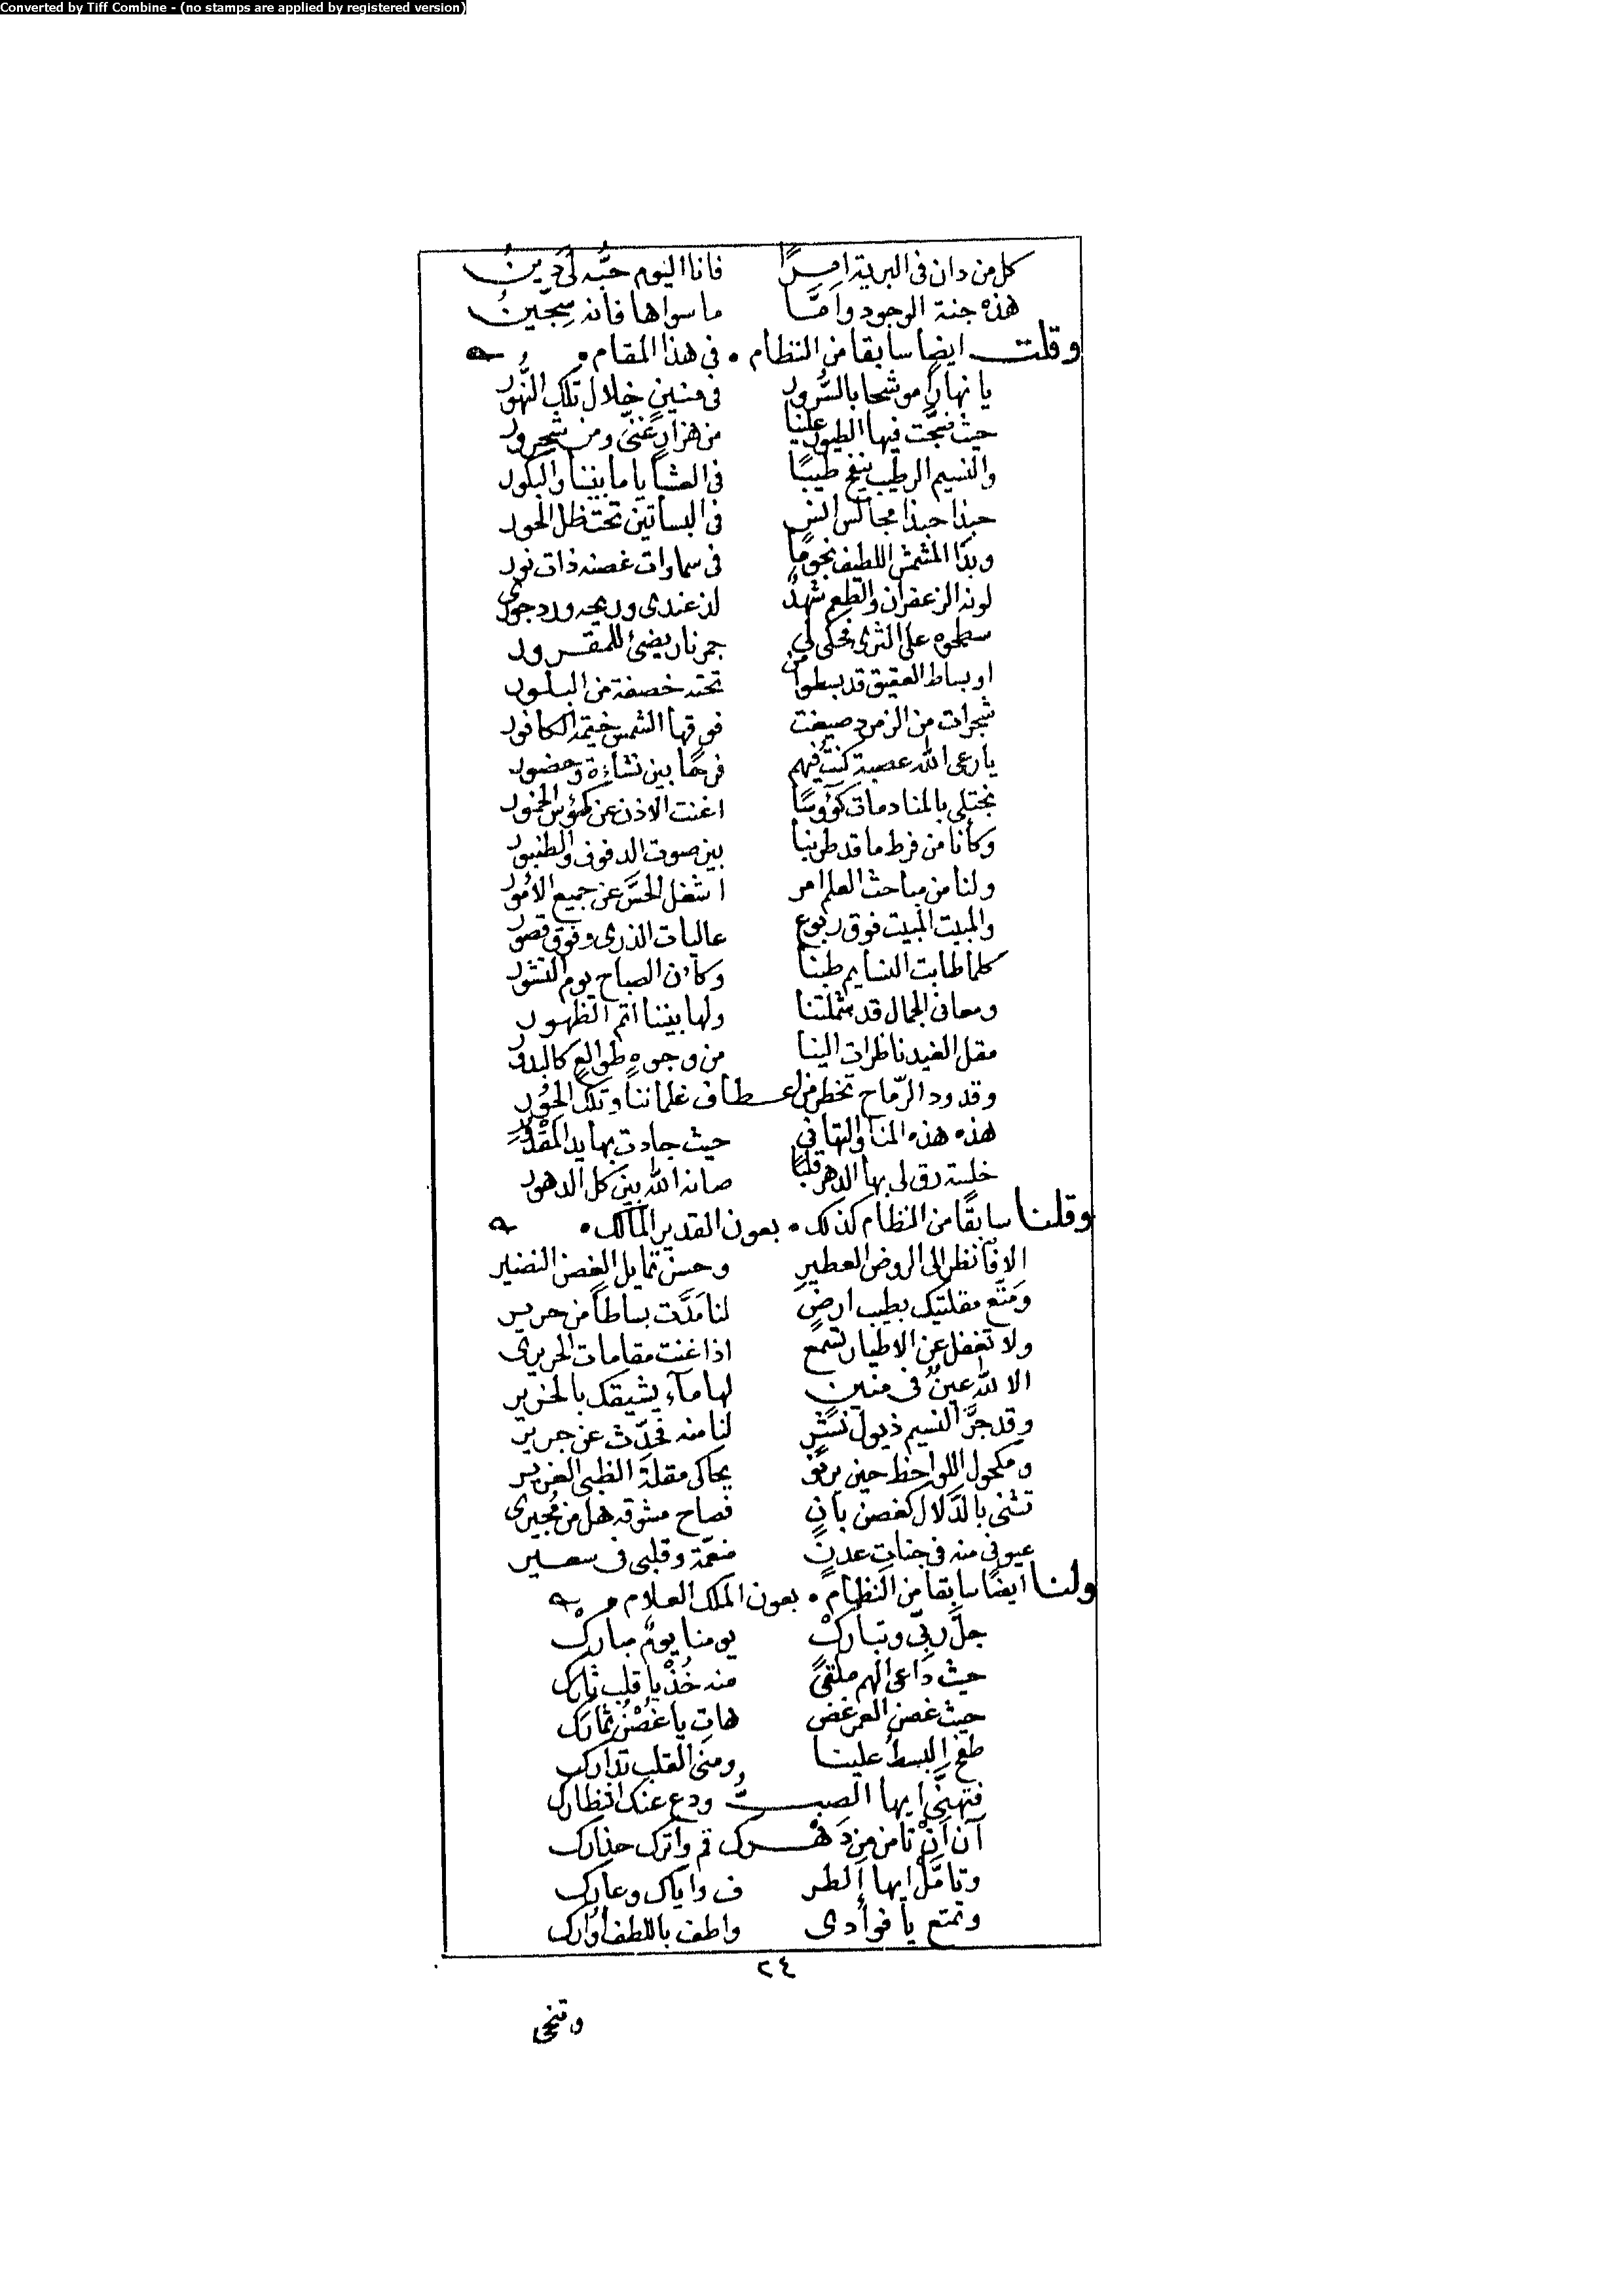 Converted by Tiff Combine - (no stamps are applied by registered version)
كل من دان فى البرية امرًا فانا اليوم حبُّه لى دينُ
هذه جنة الوجود وأمَّا ما سواها فانه سِجّينُ
وقلت ايضا سابقا من النظام • فى هذا المقام •
يا نهارًا موشحا بالسُّرور فى منينٍ خلال تلك النُّهور
حيث ضجّت فيها الطيور علينا من هزارٍ غنىّ ومن شحرور
والنسيم الرطيب ينفح طيبًا فى العشايا ما بيننا والبكور
حبذا حبذا مجالس انس فى البساتين تحت ظل الحور
وبدا المشمش اللطيف نجومًا فى سماوات غصنه ذات نور
لونه الزعفران والطعم شهدٌ لذ عندى وريحه ورد جورى
سطحوه على الثرى فحكى لى جمر نار يضئ للمقرور
او بساط العقيق قد بسطوا من تحته خصفة من البلور
شجرات من الزمرد صيغت فوقها الشمس خيمة الكافور
يا رعى الله عصبة كنتُ فيهم فرحًا بين نشاءة وحضور
نجتلى بالمنادمات كؤوسًا اغنت الاذن عن كئوس الخمور
وكأنا من فرط ما قد طربنا بين صوت الدفوف والطنبور
ولنا من مباحث العلم امر اشغل الحسَّ عن جميع الأمور
والمبيت المبيت فوق ربوع عاليات الذرى وفوق قصور
كلما طابت النسايم طبنا وكأن الصباح يوم النشور
ومعانى الجمال قد شملتنا ولها بيننا اتم الظهور
مقل الغيد ناظرات الينا من وجوهٍ طوالعٍ كالبدور
وقدود الرّماح تخطر من اعطاف غلماننا وتلك الحُور
هذه هذه المنا والتهانى حيث جادت بها يد المقدور
خلسة رق لى بها الدهر قلبًا صانه الله بين كل الدهور
وقلنا سابقًا من النظام كذلك • بعون القدير المالك •
الا فأنظر الى الروض العطيرِ وحسن تمايل الغصن النضير
ومَتّع مقلتيك بطيب ارضٍ لنا مَدَّت بساطًا من حرير
ولا تغفل عن الاطيار تسمع اذا غنت مقامات الحريرى
الا لله عينٌ فى منين لها مآء يشيقك بالخرير
وقد جرَّ النسيم ذيول نشرٍ لنا منه فحدّث عن جرير
ومكحول اللواحظ حين يرنو يحاكى مقلة الظبى الغرير
تثنى بالدَّلال كغصن بانٍ فصاح مشوقه هل من مُجيرى
عيونى منه فى جنات عدنٍ منعّمة وقلبى فى سعير
ولنا ايضًا سابقا من النظام • بعون الملك العلام •
جلَّ ربّى وتباركْ يومنا يومٌ مبارك
حيث داعى الهم ملقىً منه خُذْ يا قلب ثارك
حيث غصن العمر غض هاتِ يا غُصْن ثمارك
طفح البسط علينا ومنى القلب تدارك
فتهنَّى ايها الصبّ ودع عنك انتظارك
آن اَنْ تامن من دَهرك قم واترك حذارك
وتامَّلْ ايها الطر ف واياك وعارك
وتمتع يا فوأدى واطف باللطف اوارك
٢٤
وتنحى